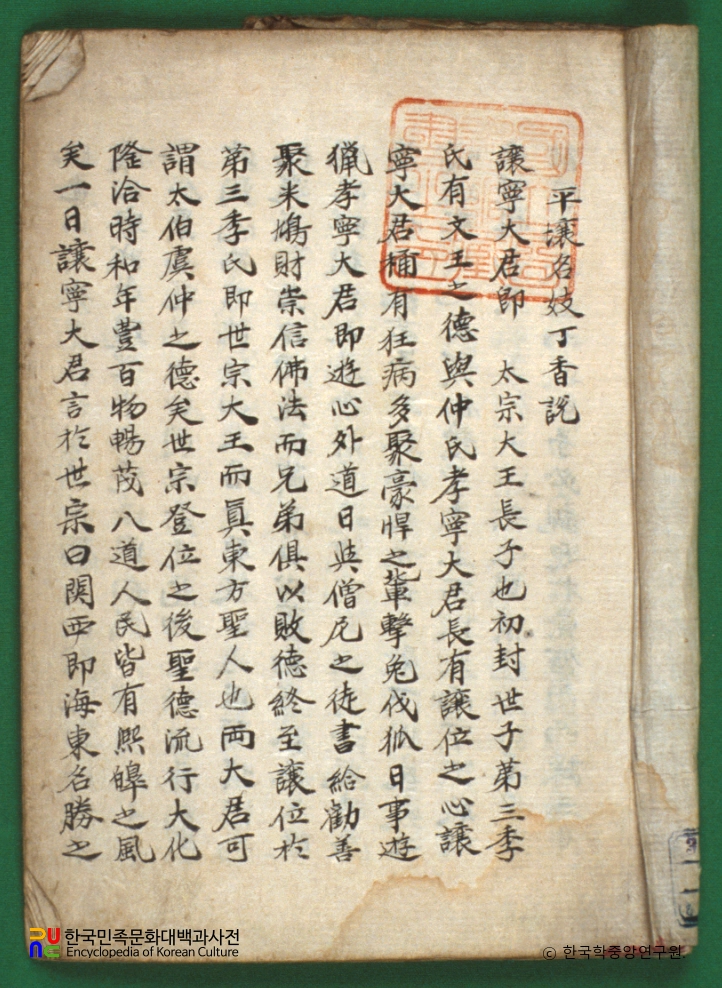 平壤名妓丁香說
讓寧大君即 太宗大王長子也初封世子第三季
氏有文王之德與仲氏孝寧大君長有讓位之心讓
寧大君稱有狂病多聚豪悍之輩擊兔伐狐日事遊
獵孝寧大君即遊心外道日與僧尼之徒書給勸善
聚米鳩財崇信佛法而兄弟俱以敗德終至讓位於
第三季氏即世宗大王而眞東方聖人也兩大君可
謂太伯虞仲之德矣世宗登位之後聖德流行大化
隆洽時和年豊百物暢茂八道人民皆有熙皞之風
矣一日讓寧大君言於世宗曰関西即海東名勝之
한국민족문화대백과사전
Encyclopedia of Korean Culture
© 한국학중앙연구원